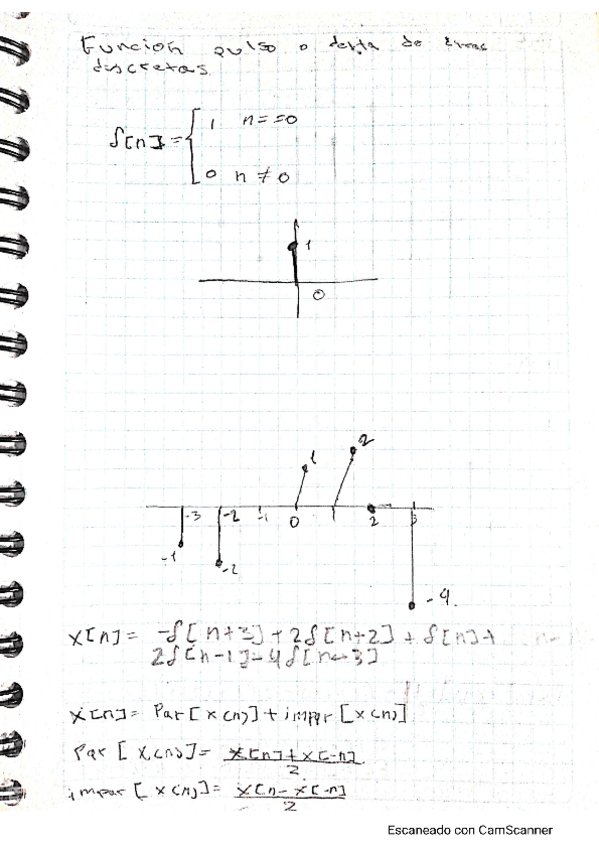 Funcion pulso o delta de
discretas
δ[n] = { 1 n==0
0 n ≠ 0
1
0
1
2
-3 -2 -1 0 1 2 3
-1
-2
-4.
x[n] = -δ[n+3] + 2δ[n+2] + δ[n] +
2δ[n-1] - 4δ[n-3]
x[n] = Par[x(n)] + impar[x(n)]
Par[x(n)] = x[n]+x[-n]
2
impar[x(n)] = x[n - x[-n]
2
Escaneado con CamScanner